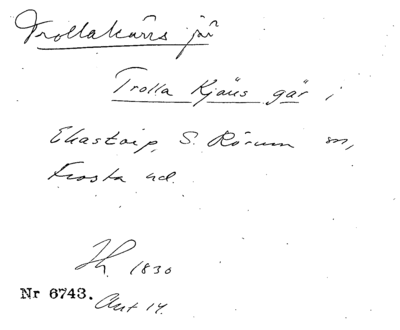 Trollakärrs jär
Trolla Kjäus gär i
Ekastorp, S. Rörum sn,
Frosta hd.
1830
Nr 6743. Ant 14.